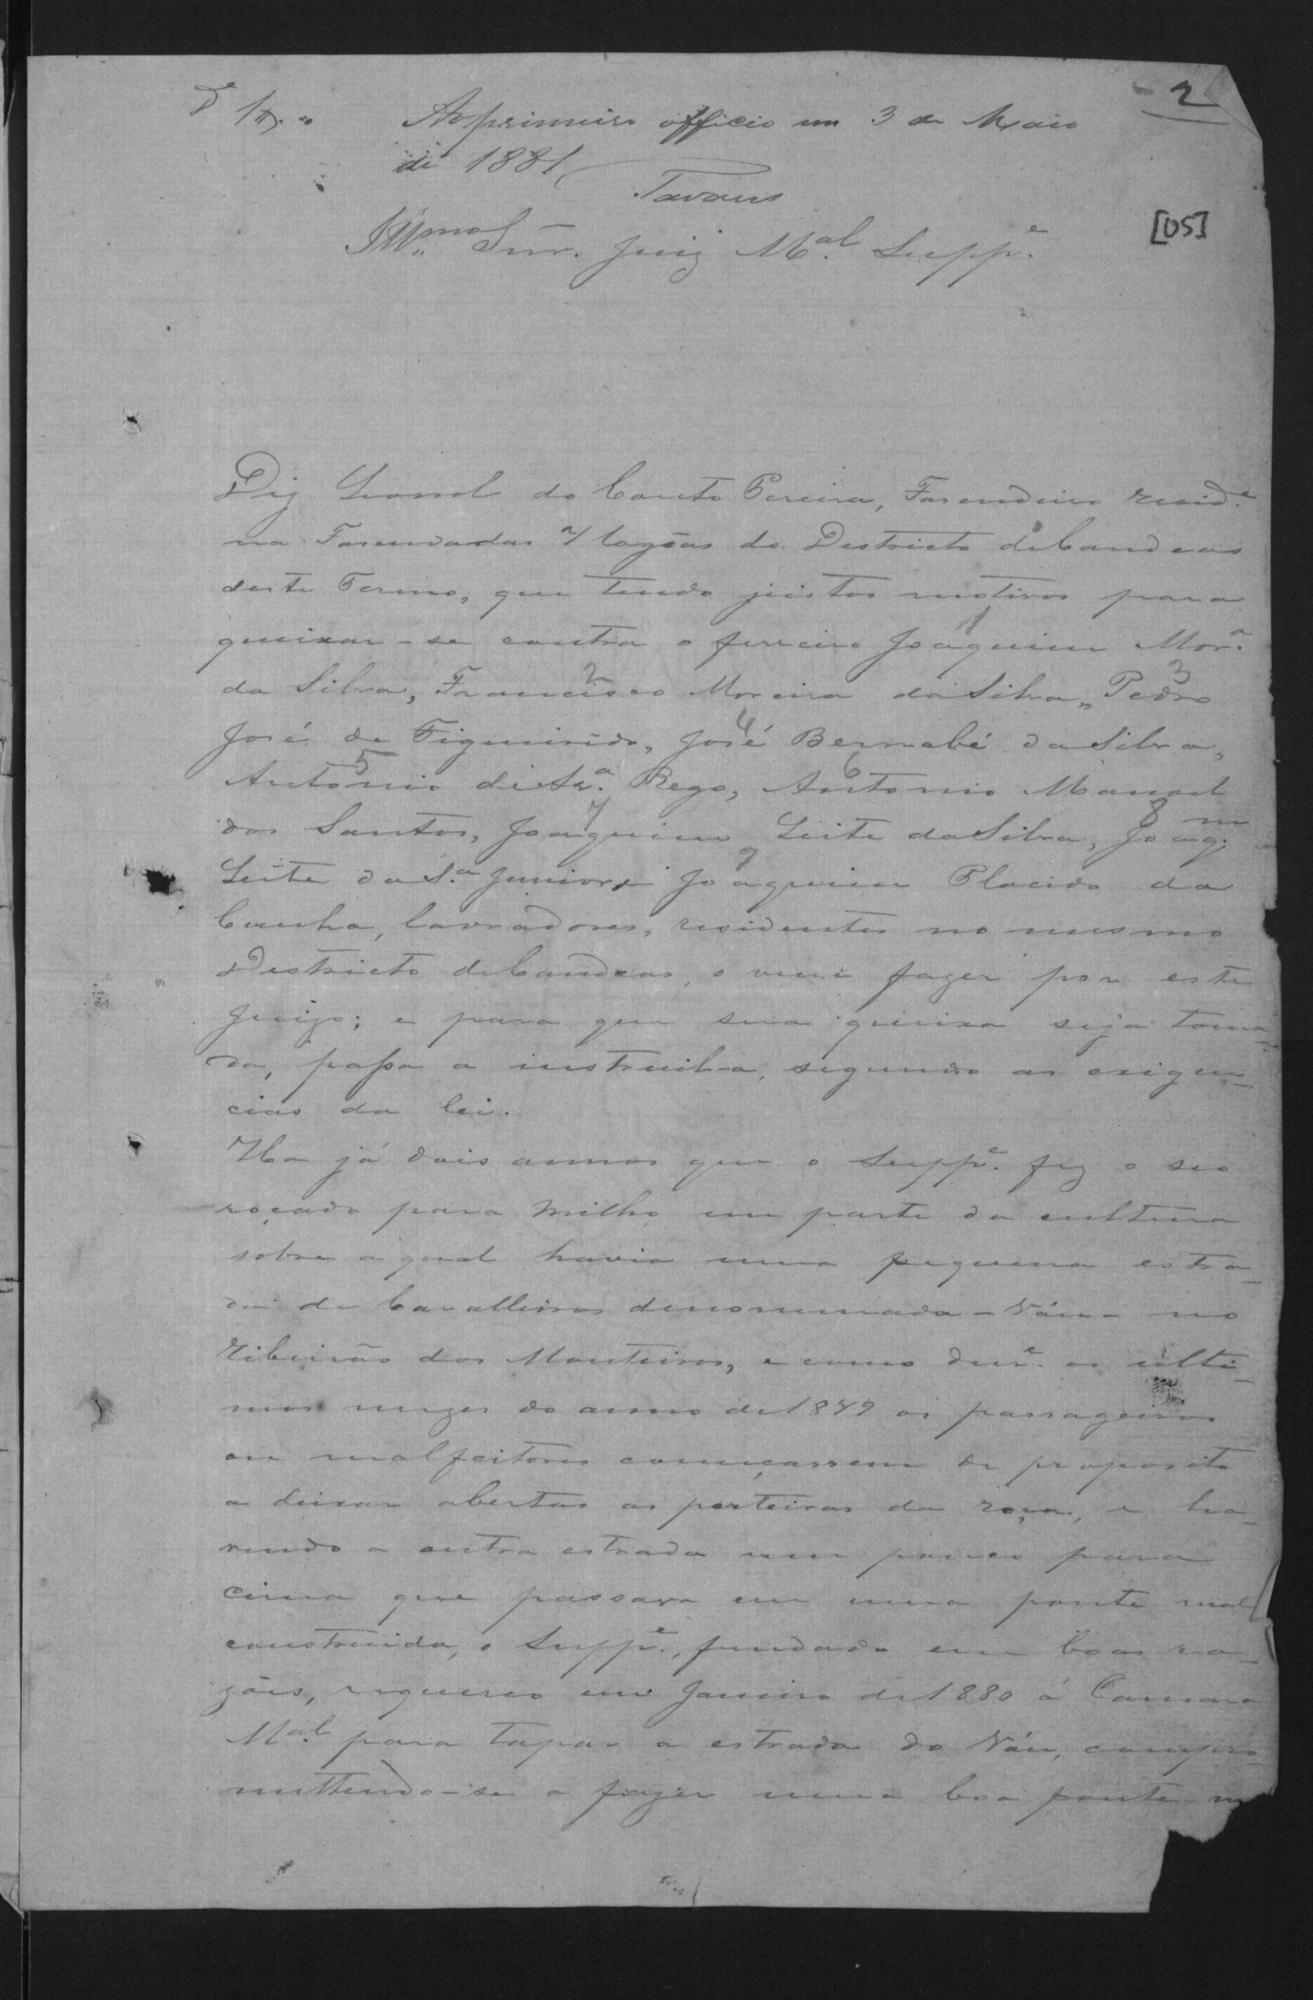 2
Ao primeiro officio em 3 de Maio
de 1881
Tavares
[05]
Illmo Snr. Juiz Mal Suppe.
Diz Leonel do Couto Pereira, Fasendeiro resid.e
na Fasenda das 7 lagôas do Destricto de Candeas
deste Termo, que tendo justos motivos para
queixar-se contra o ferreiro Joaquim Mor.a
1
da Silva, Francisco Moreira da Silva, Pedro
2 3
José de Figueiredo, José Bernabé da Silva,
4
Antonio de Sz.a Rego, Antonio Manoel
5 6
dos Santos, Joaquim Leite da Silva, Joaq.m
7 8
Leite da S.a Junior, e Joaquim Placido da
9
Cunha, lavradores, residentes no mesmo
Destricto de Candeas, o vem fazer por este
Juizo; e para que sua queixa seja toma-
da, passa a instruil-a, segundo as exigen-
cias da lei.
Ha já dois annos que o Supp.e fez o seo
roçado para milho em parte da cultura
sobre a qual havia uma pequena estra-
da de Cavalleiros denominada - Váu - no
ribeirão dos Monteiros, e como dur.e os ulti-
mos mezes do anno de 1879 os passageiros
ou malfeitores começassem de proposito
a deixar abertas as porteiras da roça, e ha-
vendo a outra estrada um pouco para
cima que passava em uma ponte mal
construida, o Supp.e, fundado em boas ra-
zões, requereo em Janeiro de 1880 á Camara
Mal para tapar a estrada do Váu, compro
mettendo-se a fazer uma boa ponte